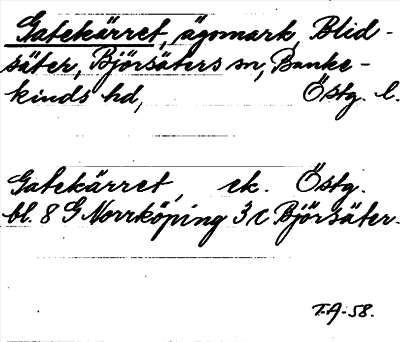 Gatekärret, ägomark, Blid-
säter, Björsäters sn, Banke-
kinds hd, Östg. l.
Gatekärret, ek. Östg.
bl. 8 G Norrköping 3 c Björsäter.
T.A-58.